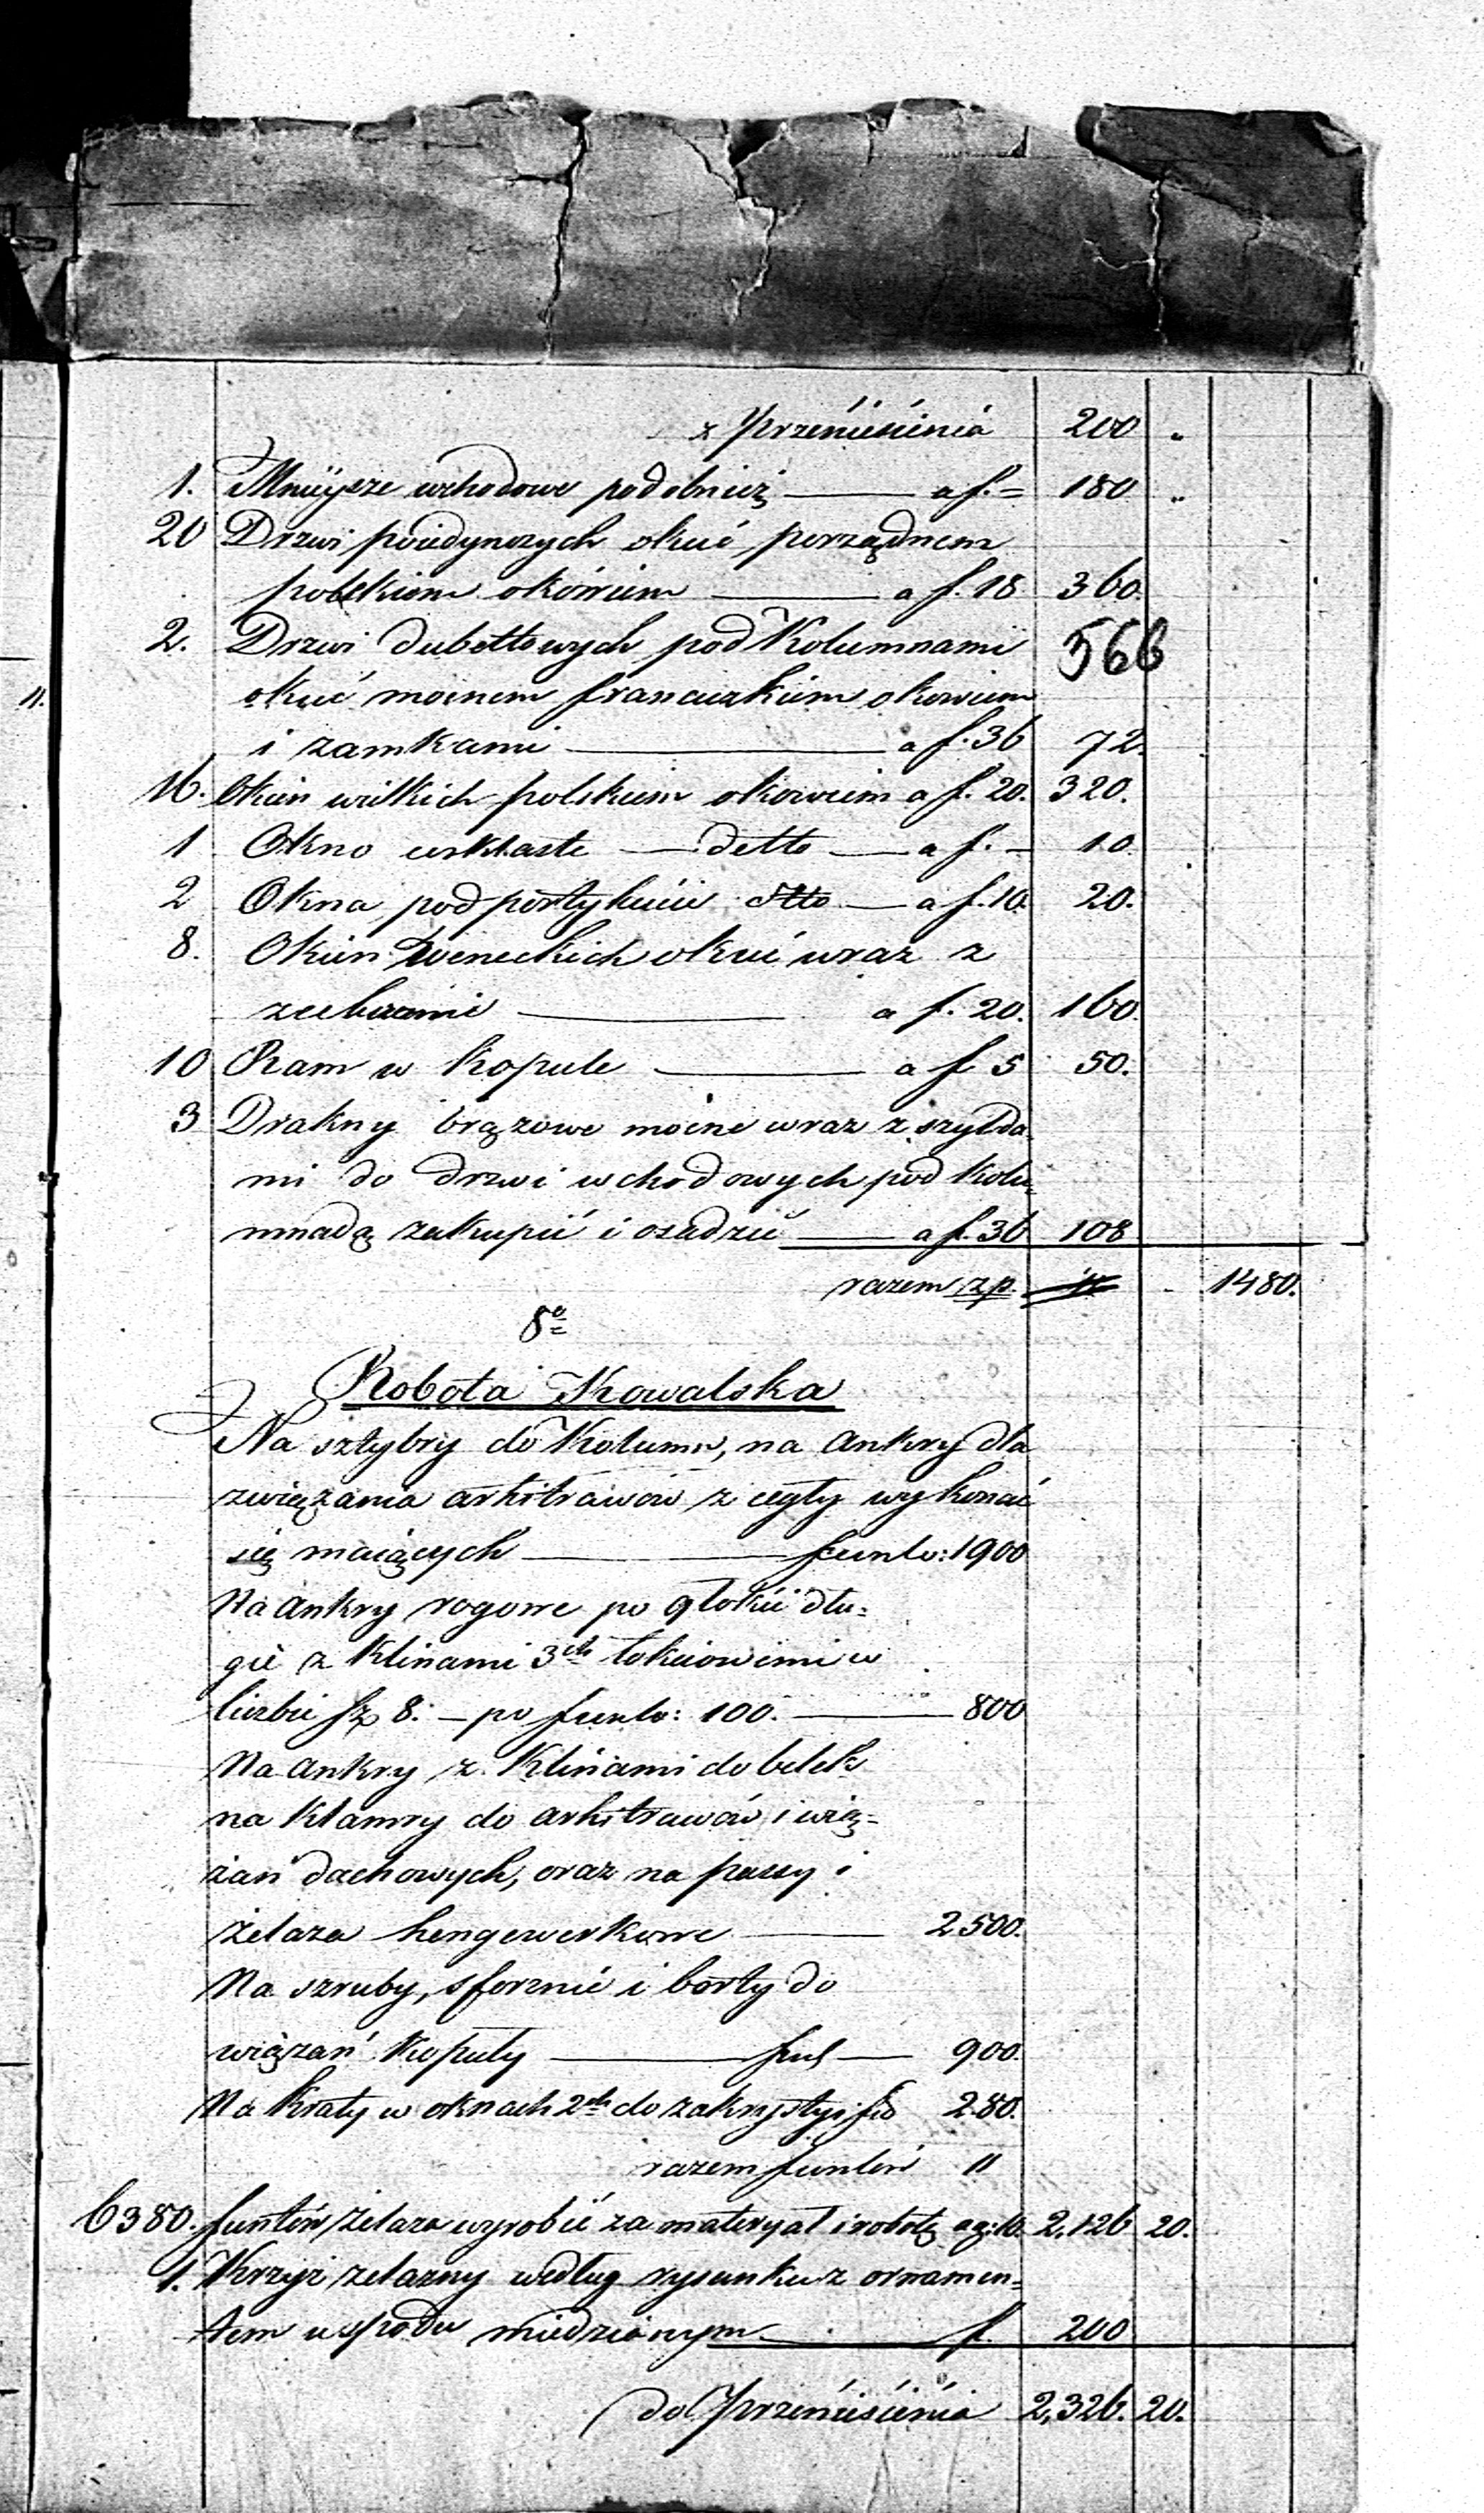 z Przeniesienia 200 "
1. Mnieysze wchodowe podobnież — a f. = 180 "
20 Drzwi poiedynczych okuć porządnem
polskiem okówiem — a f. 18 360.
2. Drzwi dubeltowych pod Kolumnami
566
okuć mocnem francuzkiem okowiem
i zamkami — a f. 36 72.
16. Okien wielkich polskiem okowiem a f. 20. 320.
1 Okno — detto — a f. — 10.
2 Okna pod portykiem dtto — a f. 10. 20.
8. Okien weneckich okuć wraz z
— a f. 20. 160.
10 Ram w Kopule — a f 5 50.
3 Drakny brązowe mocne wraz z szylda-
mi do drzwi wchodowych pod kolu-
mnadą zakupić i osadzić — a f. 36 108
razem zp. 1480.
8o
Robota Kowalska
Na sztybry do Kolumn, na Ankry dla
związania arhitrawów z cegły wykonać
się maiących — funtów: 1900
Na Ankry rogowe po 9 łokci dłu=
gie z Klinami 3ch łokciowemi w
liczbie Sz 8. — po funtów: 100. — 800
Na Ankry z Klinami do belek
na Klamry do arhitrawów i wią=
zań dachowych, oraz na passy i
żelaza hengewerkowe — 2500.
Na szruby, sforznie i borty do
wiązań Kopuły — fun — 900.
Na Kraty w oknach 2ch do zakrystyi fo 280.
razem funtów "
6380. funtów żelaza wyrobić za materyał i robotę a g: 10. 2,126 20.
1. Krzyż żelazny według rysunku z ornamen=
tem u spodu miedzianym — f. 200
do Przeniesienia 2,326. 20.
11.